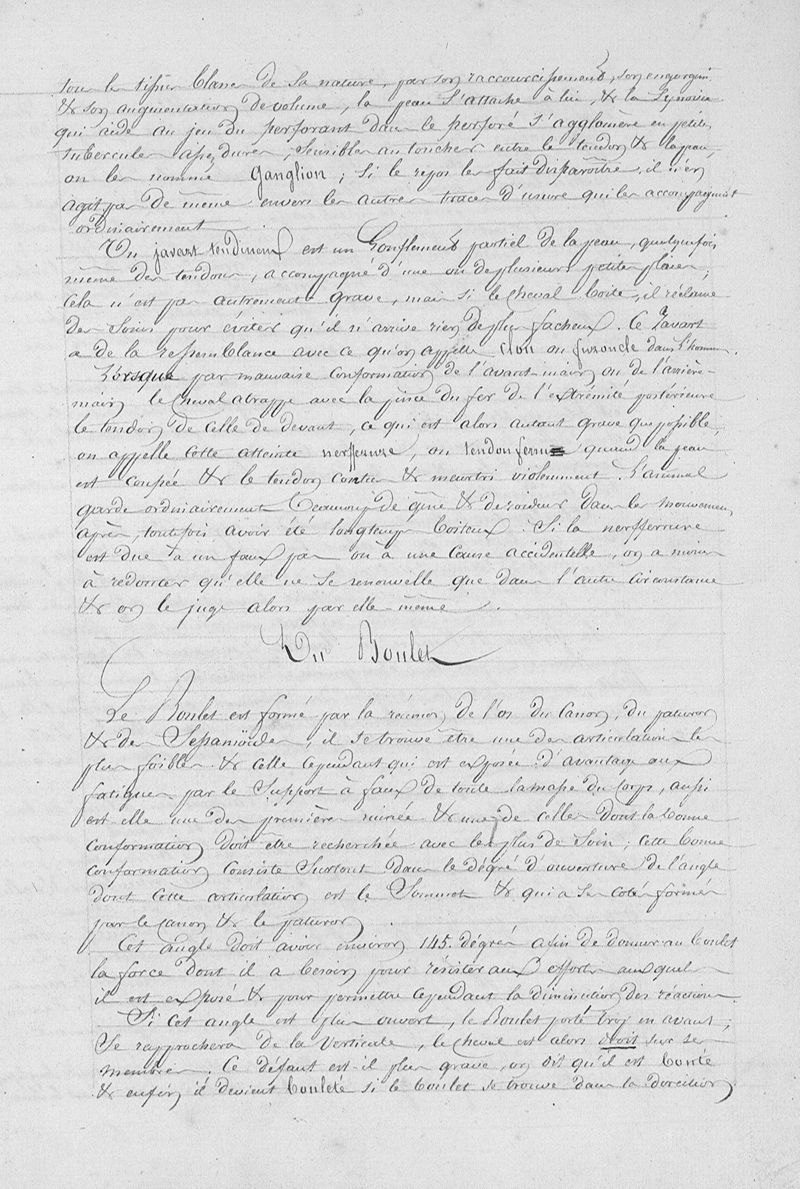 tous les tissus blancs de sa nature, par son raccourcissement, son engorgem.
& son augmentation de volume, la peau s'attache à lui, & la Synovie
qui aide au jeu du perforant dans le perforé s'agglomère en petits
tubercules assez durs, sensibles au toucher entre le tendon & la peau,
on les nomme Ganglion ; si le repos les fait disparoitre, il n'en
agit pas de même envers les autres traces d'usure qui les accompagnent
ordinairement
Un javart tendineux est un Gonflement partiel de la peau, quelquefois
même des tendons, accompagné d'une ou de plusieurs petites plaies ;
Cela n'est pas autrement grave, mais si le Cheval boite, il réclame
des soins pour éviter qu'il n'arrive rien de plus facheux. Ce Javart
a de la ressemblance avec ce qu'on appelle clou ou furoncle dans l'homme.
Lorsque par mauvaise conformation de l'avant-main ou de l'arrière-
main le cheval attrappe avec la pince du fer de l'extrémité postérieure
le tendon de celle de devant, ce qui est alors autant grave que possible,
on appelle cette atteinte nerfferure, ou tendon feru quand la peau
est coupée & le tendon contus & meurtri violemment. L'animal
garde ordinairement beaucoup de gêne & de roideur dans les mouvemens,
après, toutefois, avoir été longtemps boiteux. Si la nerfferrure
est due à un faux pas ou à une cause accidentelle, on a moins
à redouter qu'elle ne se renouvelle que dans l'autre circonstance
& on le juge alors par elle-même.
Du Boulet
Le Boulet est formé par la réunion de l'os du Canon, du paturon
& des Sesamoïdes, il se trouve être une des articulations les
plus foibles & celle cependant qui est exposée d'avantage aux
fatigues par le Support à faux de toute la masse du Corps, aussi
est elle une des premières ruinée & une de celles dont la bonne
conformation doit être recherchée avec le plus de soin ; cette bonne
conformation consiste surtout dans le dégré d'ouverture de l'angle
dont cette articulation est le Sommet & qui a ses cotés formés
par le canon & le paturon
Cet angle doit avoir environ 145. dégrés afin de donner au boulet
la force dont il a besoin pour résister aux efforts auxquels
il est exposé & pour permettre cependant la diminution des réactions.
Si cet angle est plus ouvert, le Boulet porté trop en avant ;
Se rapprochera de la verticale, le cheval est alors droit sur ses
membres. Ce défaut est-il plus grave, on dit qu'il est bouté
& enfin il devient bouleté si le boulet se trouve dans la direction